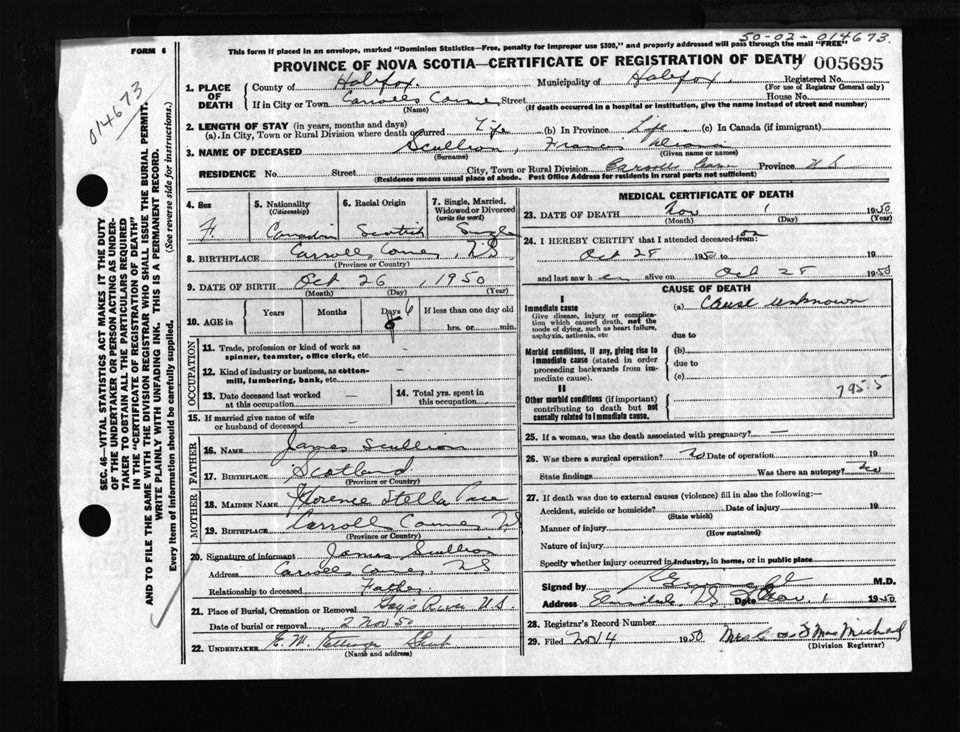 50-02-014673.
FORM 6
This form if placed in an envelope, marked "Dominion Statistics—Free, penalty for improper use $300," and properly addressed will pass through the mail "FREE"
PROVINCE OF NOVA SCOTIA—CERTIFICATE OF REGISTRATION OF DEATH 005695
014673
SEC. 46—VITAL STATISTICS ACT MAKES IT THE DUTY
OF THE UNDERTAKER OR PERSON ACTING AS UNDER-
TAKER TO OBTAIN ALL THE PARTICULARS REQUIRED
IN THE "CERTIFICATE OF REGISTRATION OF DEATH"
AND TO FILE THE SAME WITH THE DIVISION REGISTRAR WHO SHALL ISSUE THE BURIAL PERMIT.
WRITE PLAINLY WITH UNFADING INK. THIS IS A PERMANENT RECORD.
Every item of information should be carefully supplied. (See reverse side for instructions.)
1. PLACE OF DEATH
County of Halifax Municipality of Halifax Registered No.
(For use of Registrar General only)
If in City or Town Carrolls Corner Street House No.
(Name) (If death occurred in a hospital or institution, give the name instead of street and number)
2. LENGTH OF STAY (in years, months and days)
(a). In City, Town or Rural Division where death occurred Life (b) In Province Life (c) In Canada (if immigrant)
3. NAME OF DECEASED Scullion, Francis
(Surname) (Given name or names)
RESIDENCE No. Street City, Town or Rural Division Carrolls Corner Province N S
(Residence means usual place of abode. Post Office Address for residents in rural parts not sufficient)
4. Sex F
5. Nationality (Citizenship) Canadian
6. Racial Origin Scotish
7. Single, Married, Widowed or Divorced (write the word) Single
8. BIRTHPLACE Carrolls Corner, N.S.
(Province or Country)
9. DATE OF BIRTH Oct 26, 1950
(Month) (Day) (Year)
10. AGE in Years Months Days 6 If less than one day old
hrs. or min.
OCCUPATION
11. Trade, profession or kind of work as
spinner, teamster, office clerk, etc. —
12. Kind of industry or business, as cotton-
mill, lumbering, bank, etc. —
13. Date deceased last worked
at this occupation —
14. Total yrs. spent in
this occupation
15. If married give name of wife
or husband of deceased —
FATHER
16. Name James Scullion
17. Birthplace Scotland
(Province or Country)
MOTHER
18. MAIDEN NAME Florence Stella
19. Birthplace Carrolls Corner, NS
(Province or Country)
20. Signature of informant James Scullion
Address Carrolls Corner, NS
Relationship to deceased Father
21. Place of Burial, Cremation or Removal Gays River N.S.
Date of burial or removal 2 Nov 50
22. UNDERTAKER E. W.
(Name and address)
MEDICAL CERTIFICATE OF DEATH
23. DATE OF DEATH Nov 1 1950
(Month) (Day) (Year)
24. I HEREBY CERTIFY that I attended deceased from on
Oct 28 1950 to 19
and last saw h alive on Oct 28 1950
CAUSE OF DEATH
I
Immediate cause
Give disease, injury or complica-
tion which caused death, not the
mode of dying, such as heart failure,
asphyxia, asthenia, etc
(a) Cause unknown
due to
Morbid conditions, if any, giving rise to
immediate cause (stated in order
proceeding backwards from im-
mediate cause).
(b)
due to
(c)
II
Other morbid conditions (if important)
contributing to death but not
causally related to immediate cause.
795.5
25. If a woman, was the death associated with pregnancy? —
26. Was there a surgical operation? No Date of operation 19
State findings Was there an autopsy? No
27. If death was due to external causes (violence) fill in also the following:—
Accident, suicide or homicide? Date of injury 19
(State which)
Manner of injury
(How sustained)
Nature of injury
Specify whether injury occurred in industry, in home, or in public place
Signed by M.D.
Address NS Date Nov. 1 1950
28. Registrar's Record Number
29. Filed Nov 4 1950 MacMichael
(Division Registrar)